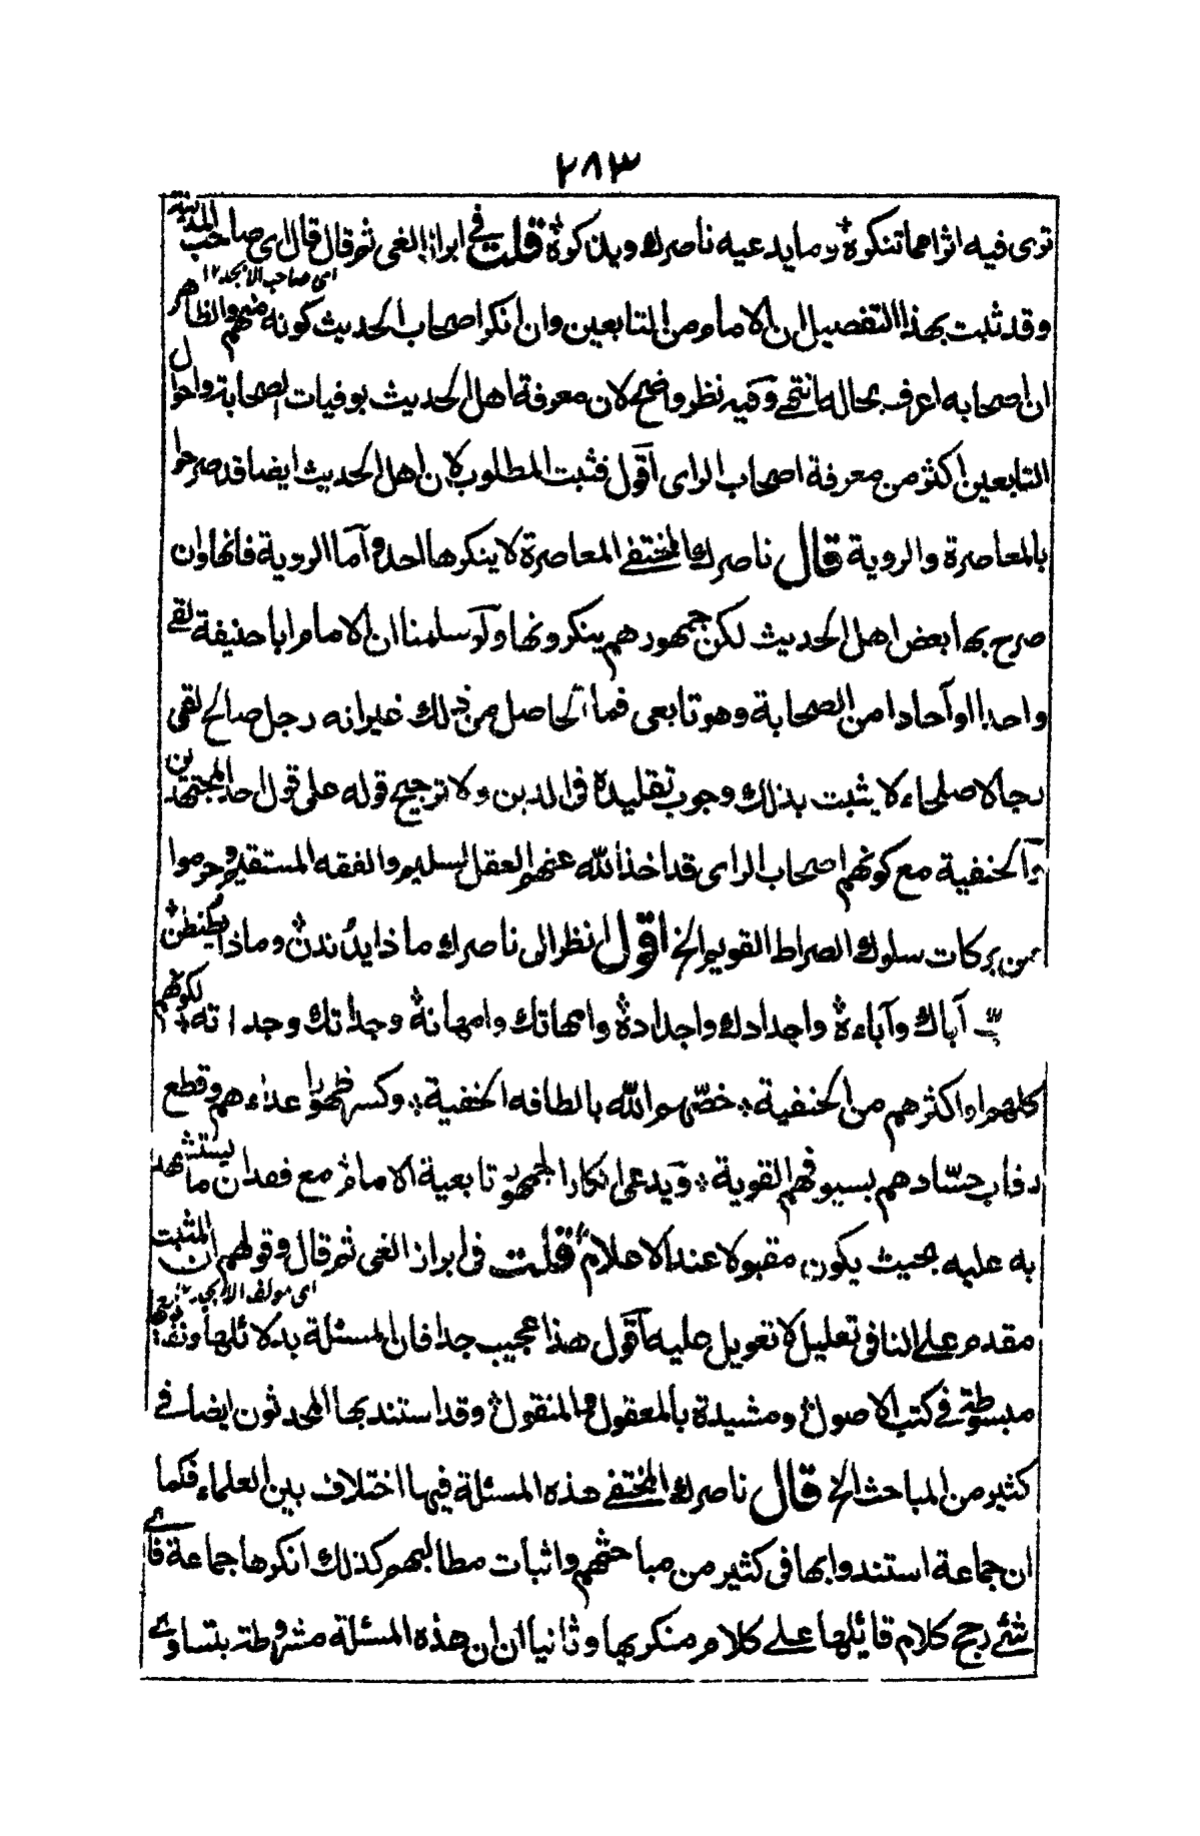 ٢٨٣
ترى فيه اثرا مما تنكره وما يدعيه ناصرك ويذكره قلت في ابراز الغي ثم قال قال اى صاحب المدينة
اى صاحب الابجد ١٢
وقد ثبت بهذا التفصيل ان الامام من التابعين وان انكر اصحاب الحديث كونه منهم والظاهر
ان اصحابه اعرف بحاله انتهى وفيه نظر واضح لان معرفة اهل الحديث بوفيات الصحابة واحوال
التابعين اكثر من معرفة اصحاب الراى اقول فثبت المطلوب لان اهل الحديث ايضا قد صرحوا
بالمعاصرة والروية قال ناصرك المختفى المعاصرة لا ينكرها احد واما الروية فانها وان
صرح بها بعض اهل الحديث لكن جمهورهم ينكرونها ولو سلمنا ان الامام ابا حنيفة لقى
واحدا او آحادا من الصحابة وهو تابعى فما الحاصل من ذلك غير انه رجل صالح لقى
رجالا صلحاء لا يثبت بذلك وجوب تقليده فى الدين ولا ترجيح قوله على قول احد المجتهدين
والحنفية مع كونهم اصحاب الراى قد اخذ الله عنهم العقل السليم والفقه المستقيم وحرموا
من بركات سلوك الصراط القويم الخ اقول انظر الى ناصرك ماذا يدندن وماذا يطنطن
آباك وآباءه واجدادك واجداده وامهاتك وامهاته وجداتك وجداته لكونهم
كلهم او اكثرهم من الحنفية خصهم الله بالطافه الخفية وكسر ظهور اعداءهم وقطع
رقاب حسادهم بسيوفهم القوية ويدعى انكار الجمهور تابعية الامام مع فقدان ما يستشهد
به عليه بحيث يكون مقبولا عند الاعلام قلت فى ابراز الغى ثم قال وقولهم ان المثبت
اى مولف الابجد ١٢
مقدم على النافى تعليل لا تعويل عليه اقول هذا عجيب جدا فان المسئلة بدلائلها
مبسوطة فى كتب الاصول ومشيدة بالمعقول والمنقول وقد استند بها المحدثون ايضا فى
كثير من المباحث الخ قال ناصرك المختفى هذه المسئلة فيها اختلاف بين العلماء فكما
ان جماعة استندوا بها فى كثير من مباحثهم واثبات مطالبهم كذلك انكرها جماعة فاى
شئ رجح كلام قائلها على كلام منكريها وثانيا ان هذه المسئلة مشروطة بتساوى